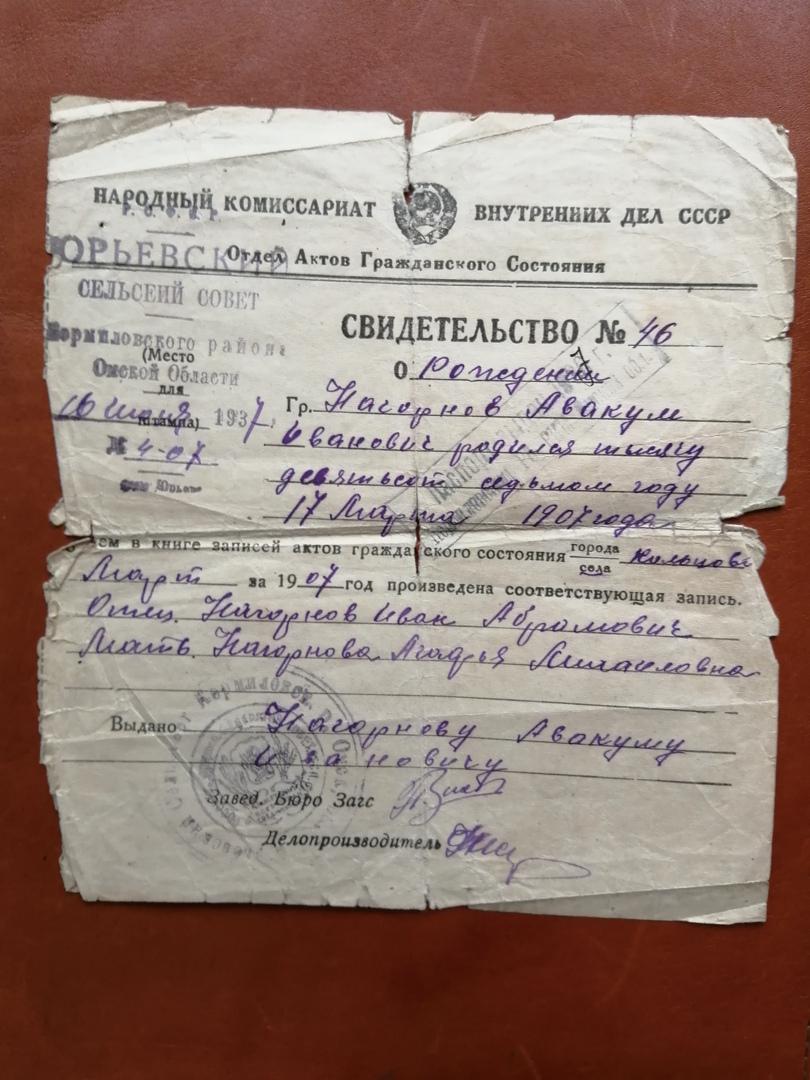 НАРОДНЫЙ КОМИССАРИАТ ВНУТРЕННИХ ДЕЛ СССР
Отдел Актов Гражданского Состояния
ЮРЬЕВСКИЙ
СЕЛЬСКИЙ СОВЕТ
Кормиловского района
Омской Области
(Место
для
штампа)
16 июня 1937
№ 4-07
СВИДЕТЕЛЬСТВО № 46
О Рождении
Гр. Нагорнов Авакум
Иванович родился тысячу
девятьсот седьмом году
17 Марта 1907 года
чем в книге записей актов гражданского состояния города
села
Март за 1907 год произведена соответствующая запись.
Отец. Нагорнов Иван Абрамович
Мать. Нагорнова Агафья Михаиловна
Выдано Нагорнову Авакуму
Ивановичу
Завед. Бюро Загс
Делопроизводитель